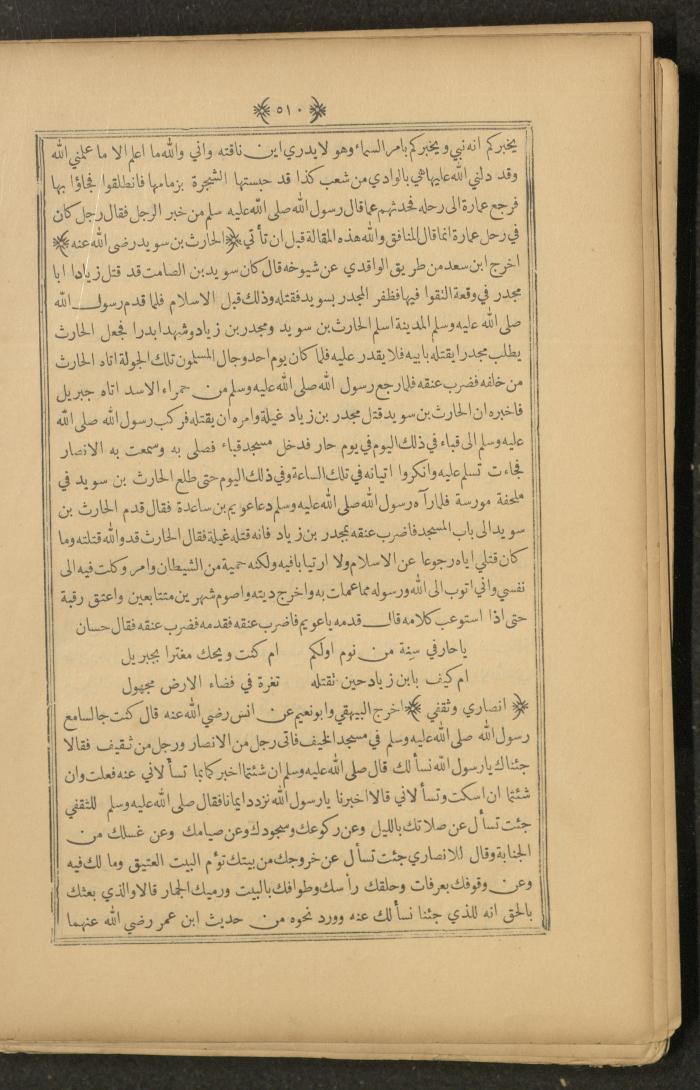 ﴿ ٥١٠ ﴾
يخبركم انه نبي ويخبركم بامر السماء وهو لا يدري اين ناقته واني والله ما اعلم الا ما علمني الله
وقد دلني الله عليها هي بالوادي من شعب كذا قد حبستها الشجرة بزمامها فانطلقوا فجاؤا بها
فرجع عمارة الى رحله فحدثهم عما قال رسول الله صلى الله عليه سلم من خبر الرجل فقال رجل كان
في رحل عمارة انما قال المنافق والله هذه المقالة قبل ان تأتي ﴿ الحارث بن سويد رضى الله عنه ﴾
اخرج ابن سعد من طريق الواقدي عن شيوخه قال كان سويد بن الصامت قد قتل زيادا ابا
مجدر في وقعة التقوا فيها فظفر المجدر بسويد فقتله وذلك قبل الاسلام فلما قدم رسول الله
صلى الله عليه وسلم المدينة اسلم الحارث بن سويد ومجدر بن زياد وشهدا بدرا فجعل الحارث
يطلب مجدرا يقتله بابيه فلا يقدر عليه فلما كان يوم احد وجال المسلمون تلك الجولة اتاه الحارث
من خلفه فضرب عنقه فلما رجع رسول الله صلى الله عليه وسلم من حمراء الاسد اتاه جبريل
فاخبره ان الحارث بن سويد قتل مجدر بن زياد غيلة وامره ان يقتله فركب رسول الله صلى الله
عليه وسلم الى قباء في ذلك اليوم في يوم حار فدخل مسجد قباء فصلى به وسمعت به الانصار
فجاءت تسلم عليه وانكروا اتيانه في تلك الساعة وفي ذلك اليوم حتى طلع الحارث بن سويد في
ملحفة مورسة فلما رآه رسول الله صلى الله عليه وسلم دعا عويم بن ساعدة فقال قدم الحارث بن
سويد الى باب المسجد فاضرب عنقه بمجدر بن زياد فانه قتله غيلة فقال الحارث قد والله قتلته وما
كان قتلي اياه رجوعا عن الاسلام ولا ارتيابا فيه ولكنه حمية من الشيطان وامر وكلت فيه الى
نفسي واني اتوب الى الله ورسوله مما عملت به واخرج ديته واصوم شهرين متتابعين واعتق رقبة
حتى اذا استوعب كلامه قال قدمه يا عويم فاضرب عنقه فقدمه فضرب عنقه فقال حسان
يا حار في سنة من نوم اولكم ام كنت ويحك مغترا بجبريل
ام كيف بابن زياد حين تقتله تغرة في فضاء الارض مجهول
﴿ انصاري وثقفي ﴾ اخرج البيهقي وابو نعيم عن انس رضي الله عنه قال كنت جالسا مع
رسول الله صلى الله عليه وسلم في مسجد الخيف فاتى رجل من الانصار ورجل من ثقيف فقالا
جئناك يا رسول الله نسألك قال صلى الله عليه وسلم ان شئتما اخبركما بما تسألاني عنه فعلت وان
شئتما ان اسكت وتسألاني قالا اخبرنا يا رسول الله نزدد ايمانا فقال صلى الله عليه وسلم للثقفي
جئت تسأل عن صلاتك بالليل وعن ركوعك وسجودك وعن صيامك وعن غسلك من
الجنابة وقال للانصاري جئت تسأل عن خروجك من بيتك تؤم البيت العتيق وما لك فيه
وعن وقوفك بعرفات وحلقك رأسك وطوافك بالبيت ورميك الجمار قالا والذي بعثك
بالحق انه للذي جئنا نسألك عنه وورد نحوه من حديث ابن عمر رضي الله عنهما